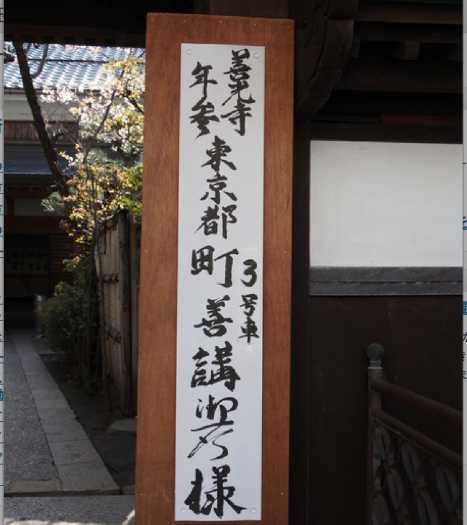 善光寺
年参
東京都
町善講御一行様
3号車